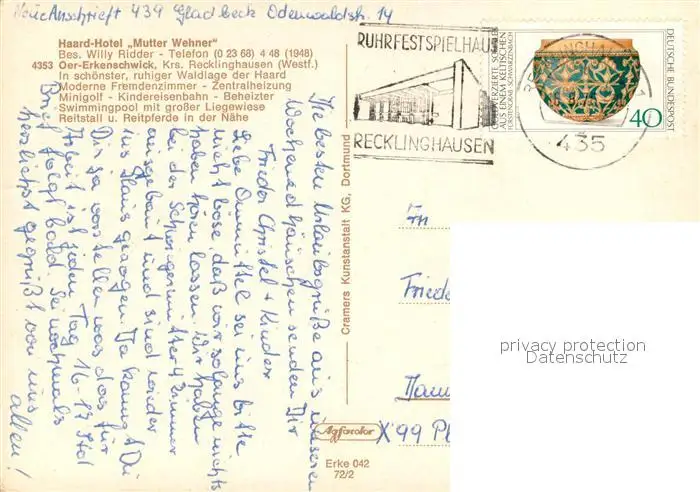 Neue Anschrift 439 Gladbeck Odenwaldstr. 14
Haard-Hotel „Mutter Wehner"
Bes. Willy Ridder - Telefon (0 23 68) 4 48 (1948)
4353 Oer-Erkenschwick, Krs. Recklinghausen (Westf.)
In schönster, ruhiger Waldlage der Haard
Moderne Fremdenzimmer - Zentralheizung
Minigolf - Kindereisenbahn - Beheizter
Swimmingpool mit großer Liegewiese
Reitstall u. Reitpferde in der Nähe
Die besten Urlaubsgrüße aus unserem
Wochenendhäuschen senden Dir
Frieder Christel + Kinder
Liebe Ommi sei uns bitte
nicht böse, daß wir solange nichts
haben hören lassen. Wir haben
bei der Schwiegermutter 4 Zimmer
ausgebaut und sind wieder
ins Haus gezogen. Da kannst Du
Dir ja vorstellen was das für
Arbeit ist jeden Tag 16-17 Std
Brief folgt bald. Sei nochmals
herzlichst gegrüßt von uns
allen!
Cramers Kunstanstalt KG, Dortmund
Agfacolor
Erke 042
72/2
RUHRFESTSPIELHAUS
RECKLINGHAUSEN
RECKLINGHAUSEN
435
AUS EINEM KELTISCHEN
FÜRSTENGRAB · SCHWARZENBACH
DEUTSCHE BUNDESPOST
40
Friede
X 99 Pl
privacy protection
Datenschutz